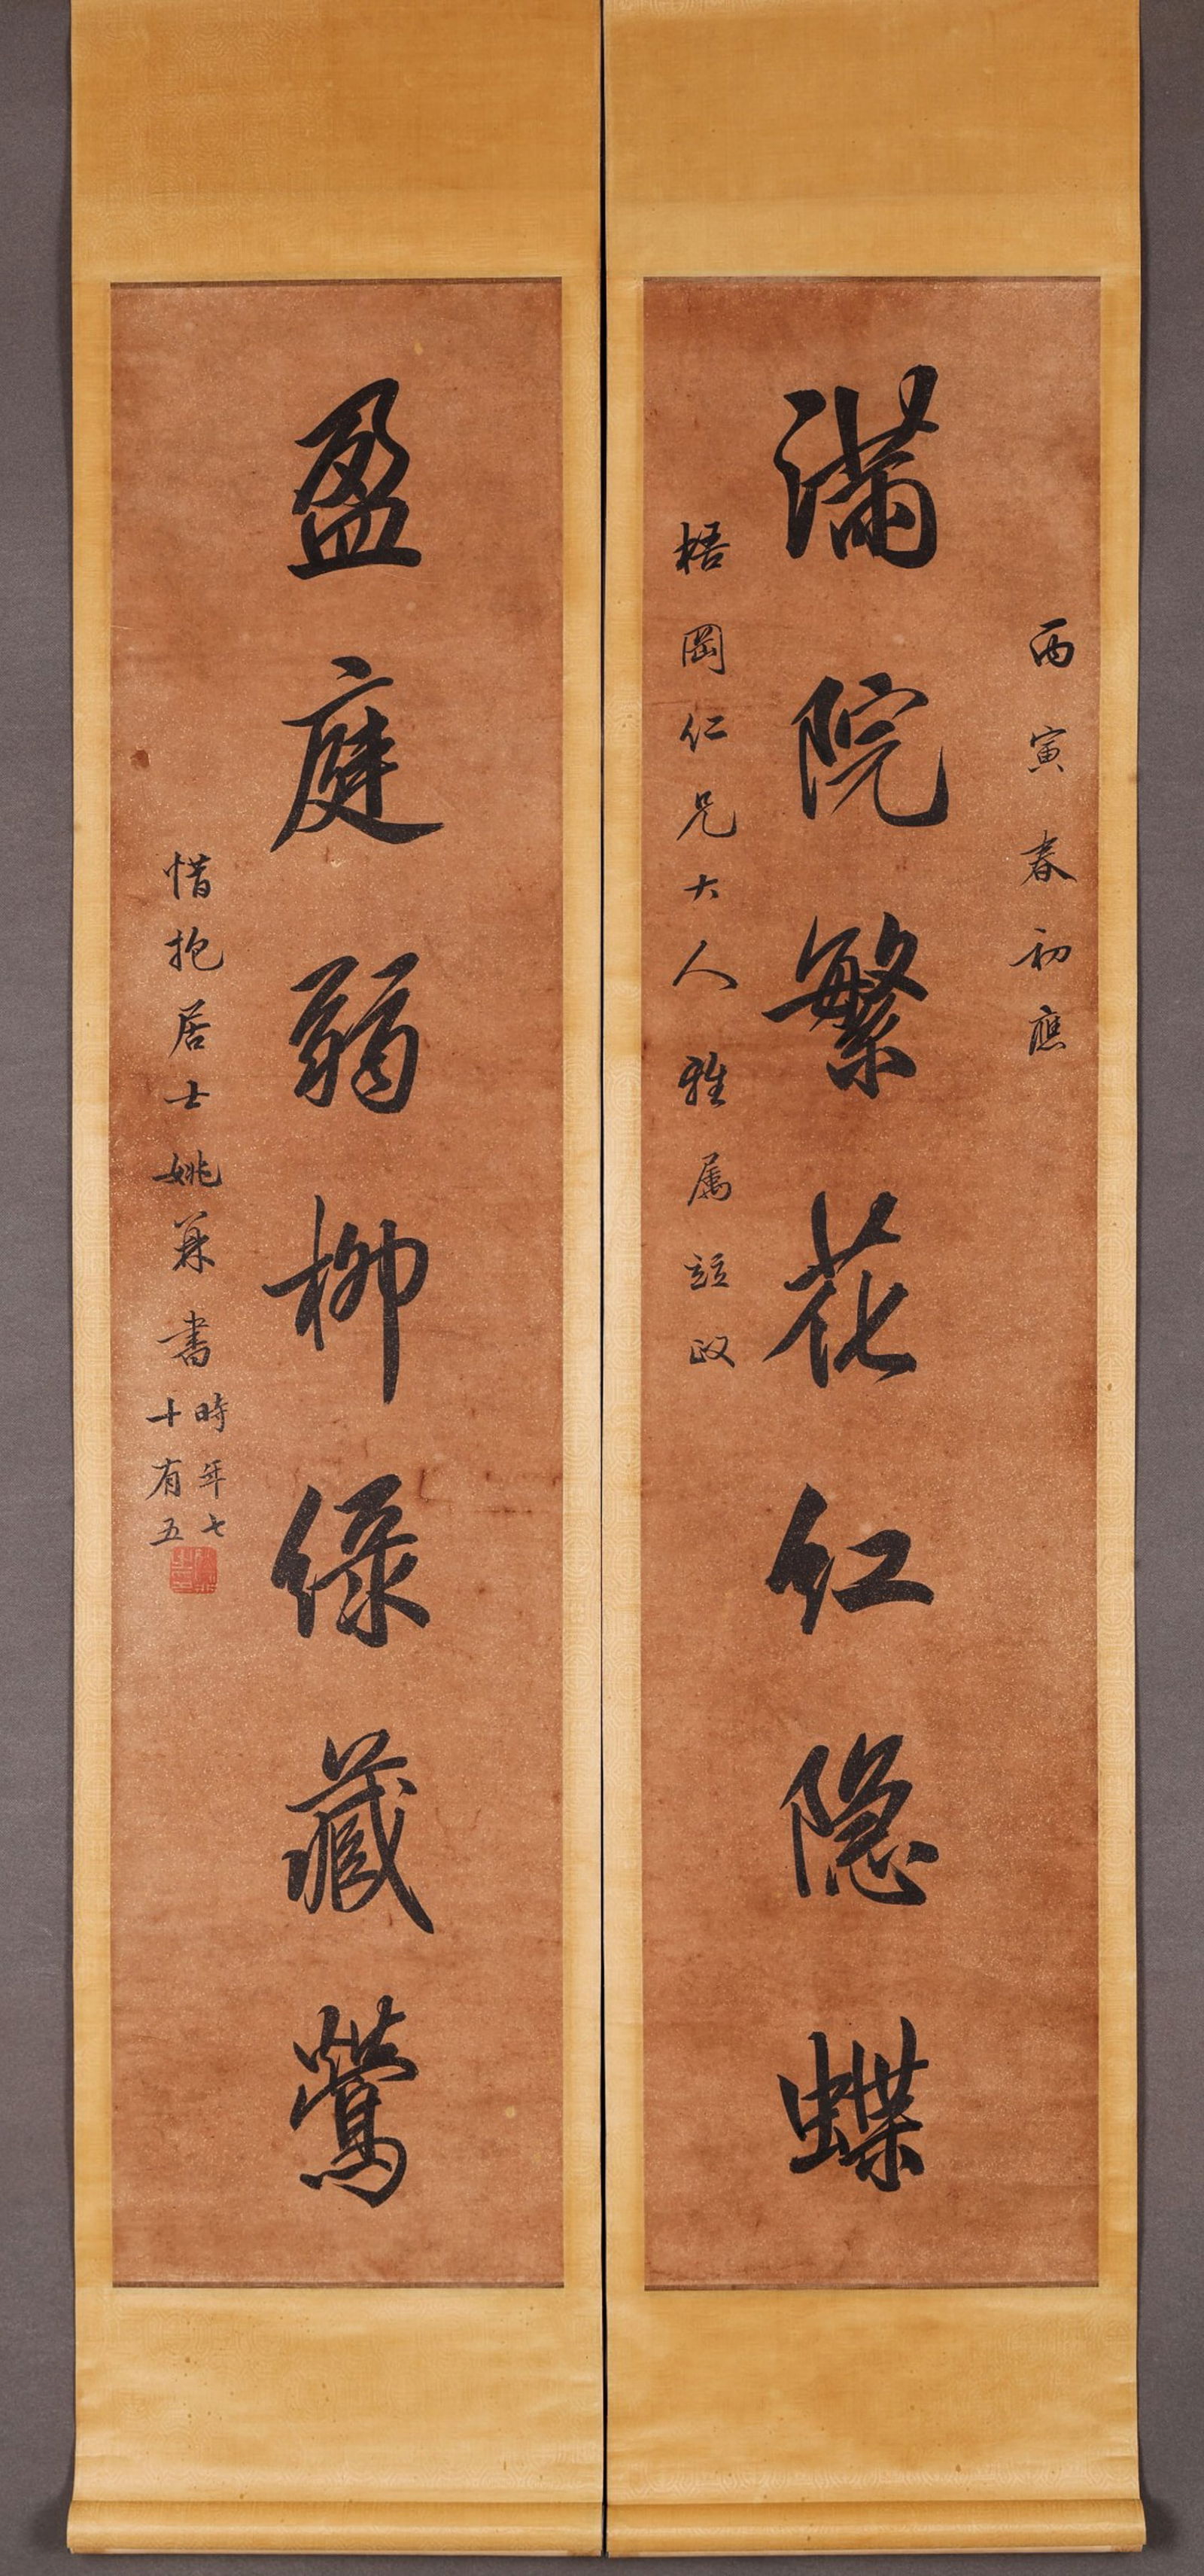 丙寅春初應
滿院繁花紅隱蝶
梧岡仁兄大人雅屬竝政
盈庭弱柳綠藏鶯
惜抱居士姚鼐書
時年七
十有五